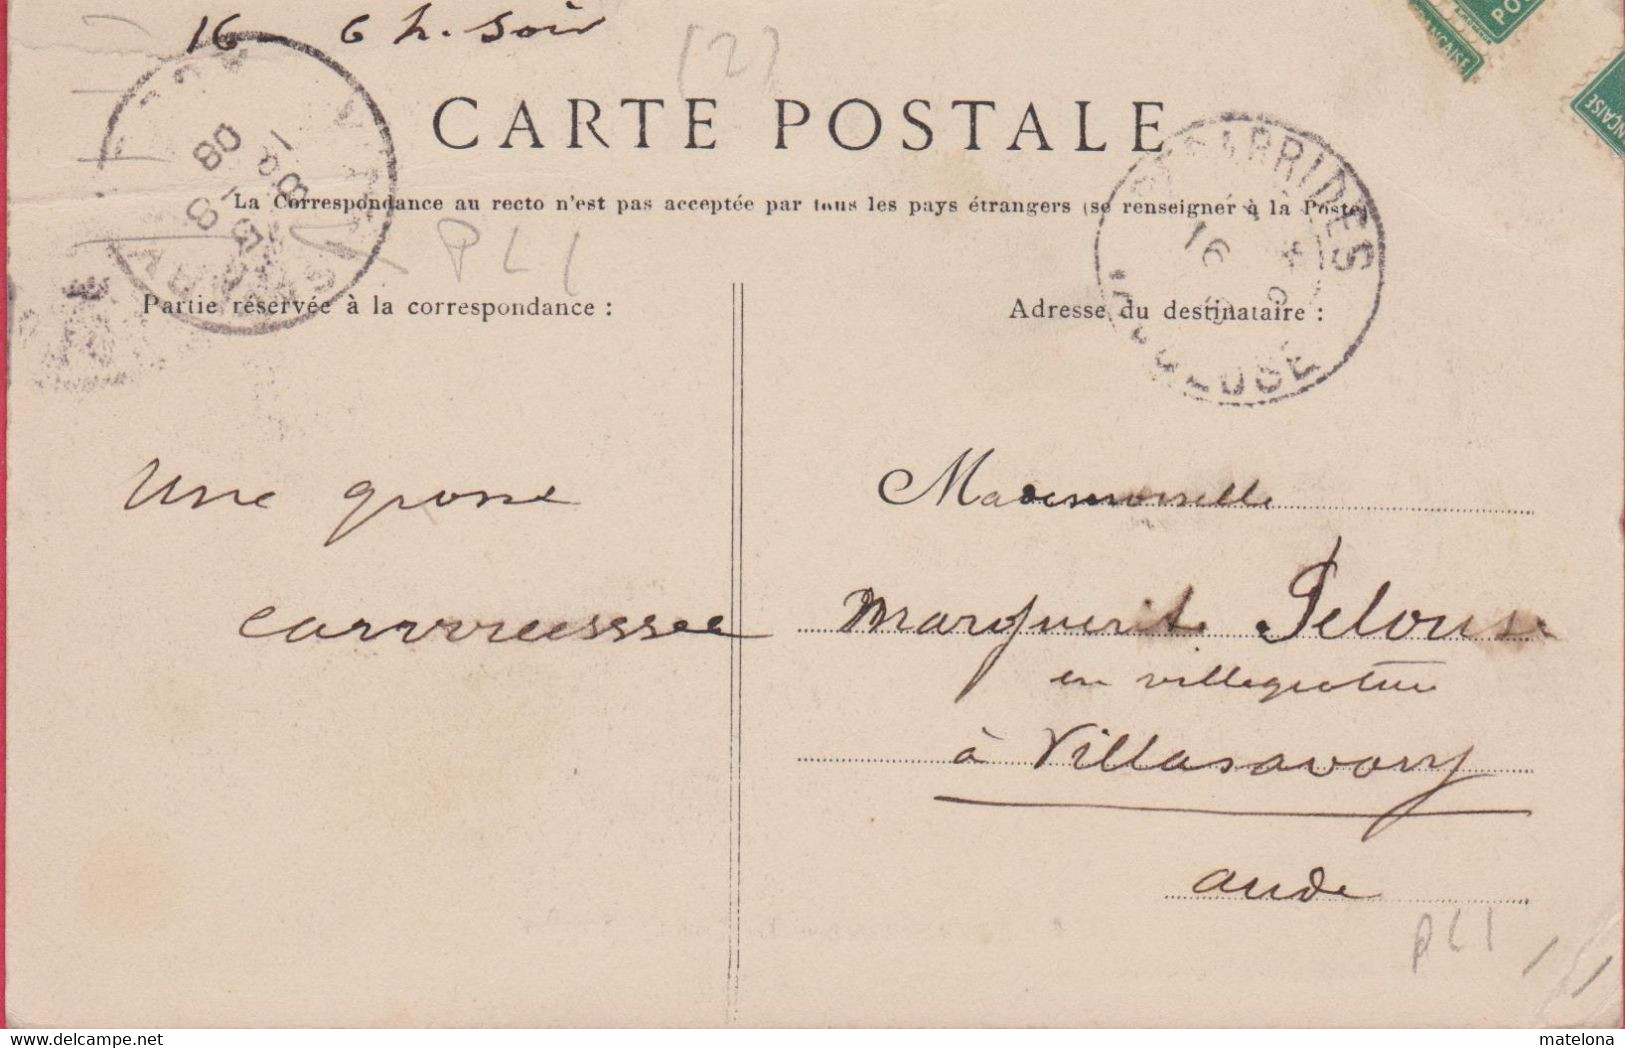 16 - 6 h. soir
(2)
POS
FRANÇAISE
NÇAISE
CARTE POSTALE
La Correspondance au recto n'est pas acceptée par tous les pays étrangers (se renseigner à la Poste)
PLI
18
8
08
16
VAUCLUSE
Partie réservée à la correspondance :
Adresse du destinataire :
Une grosse
carrrreesssee
Mademoiselle
Marguerite Pelouse
en villegiature
à Villasavary
Aude
PLI
www.delcampe.net
matelona